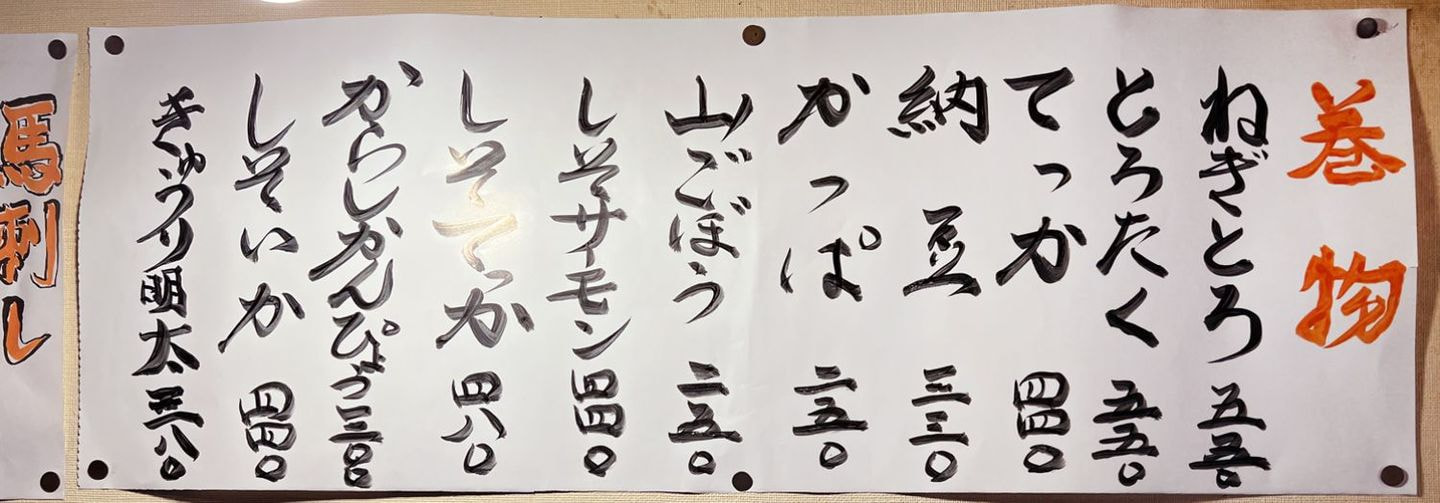 巻物
ねぎとろ 五五〇
とろたく 五五〇
てっか 四四〇
納豆 三三〇
かっぱ 二五〇
山ごぼう 二五〇
しそサーモン 四四〇
しそてっか 四八〇
からしかんぴょう
しそいか 四四〇
きゅうり明太 三八〇
馬刺し